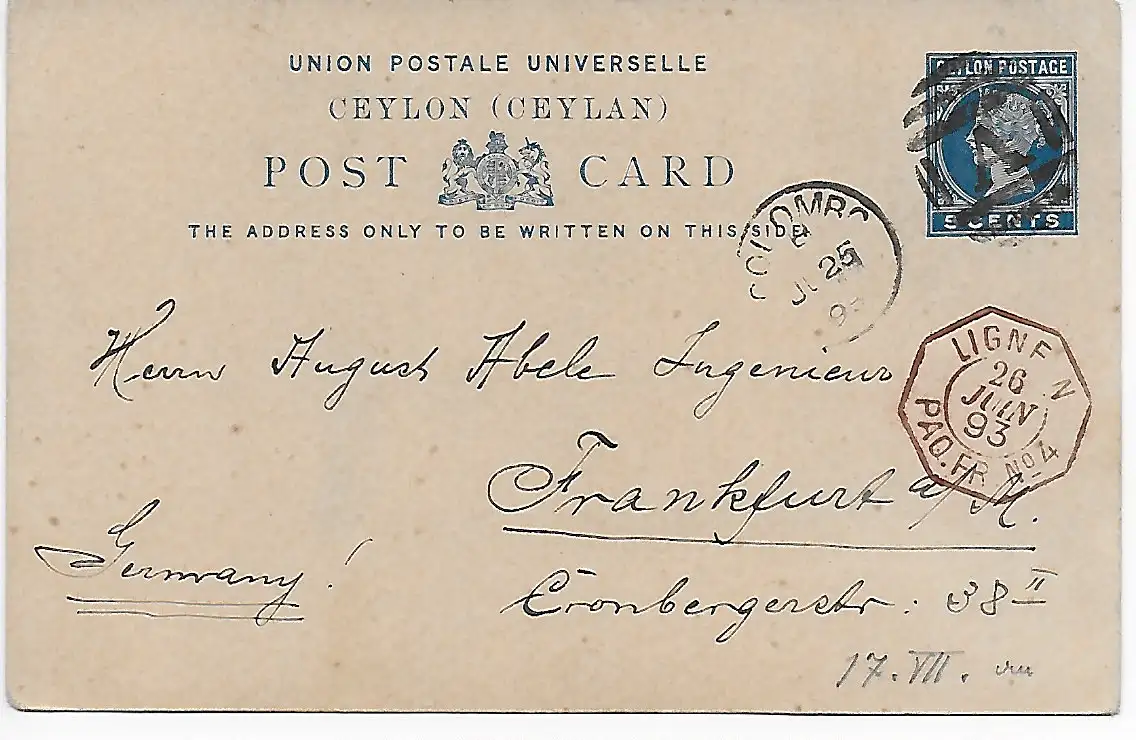 UNION POSTALE UNIVERSELLE
CEYLON (CEYLAN)
POST CARD
THE ADDRESS ONLY TO BE WRITTEN ON THIS SIDE.
CEYLON POSTAGE
5 CENTS
COLOMBO
25
93
LIGNE N
26
JUIN
93
PAQ. FR. No 4
Herrn August Abele Ingenieur
Frankfurt a/M.
Germany!
Cronbergerstr: 38 II
17. VII.